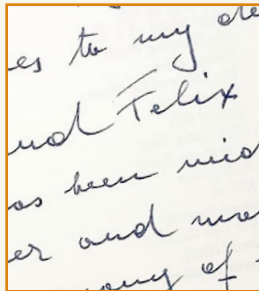 es to my de
und Felix
as been mid
er and mo
ony of